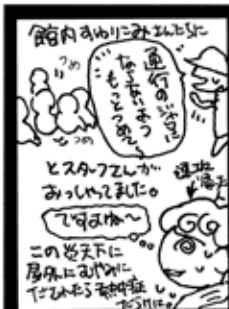 館内すわりこみさんたちに
運行のジャマに
ならないよう
もっとつめて
つめ
つめ
とスタッフさんが
おっしゃってました。
ですよね〜
この炎天下に
屋外にむやみに
だされたら熱中症
だらけに。